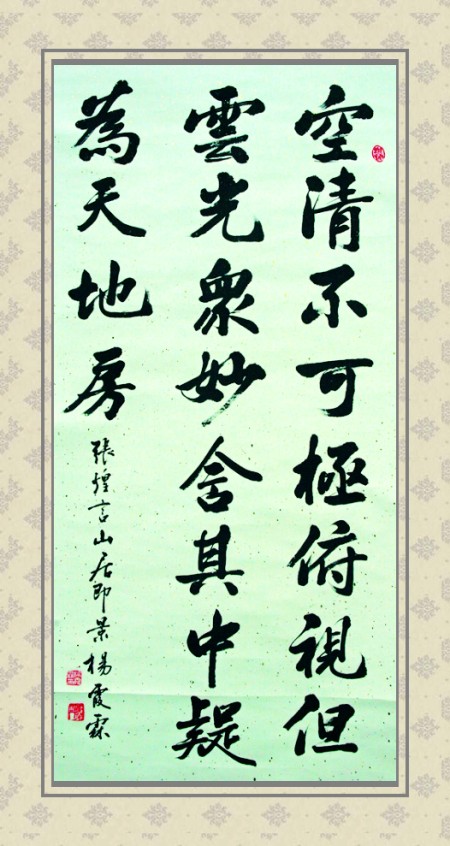 空清不可極俯視但
雲光衆妙含其中疑
為天地房
張煌言山居即景楊霞霖